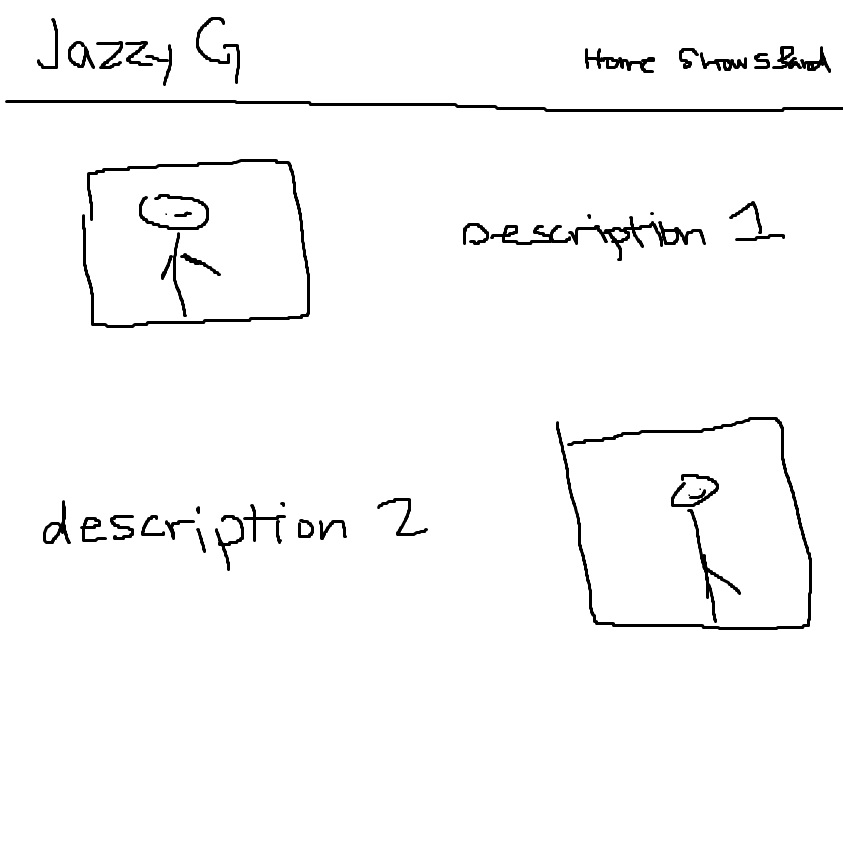 Jazzy G
Home Shows Band
Description 1
description 2